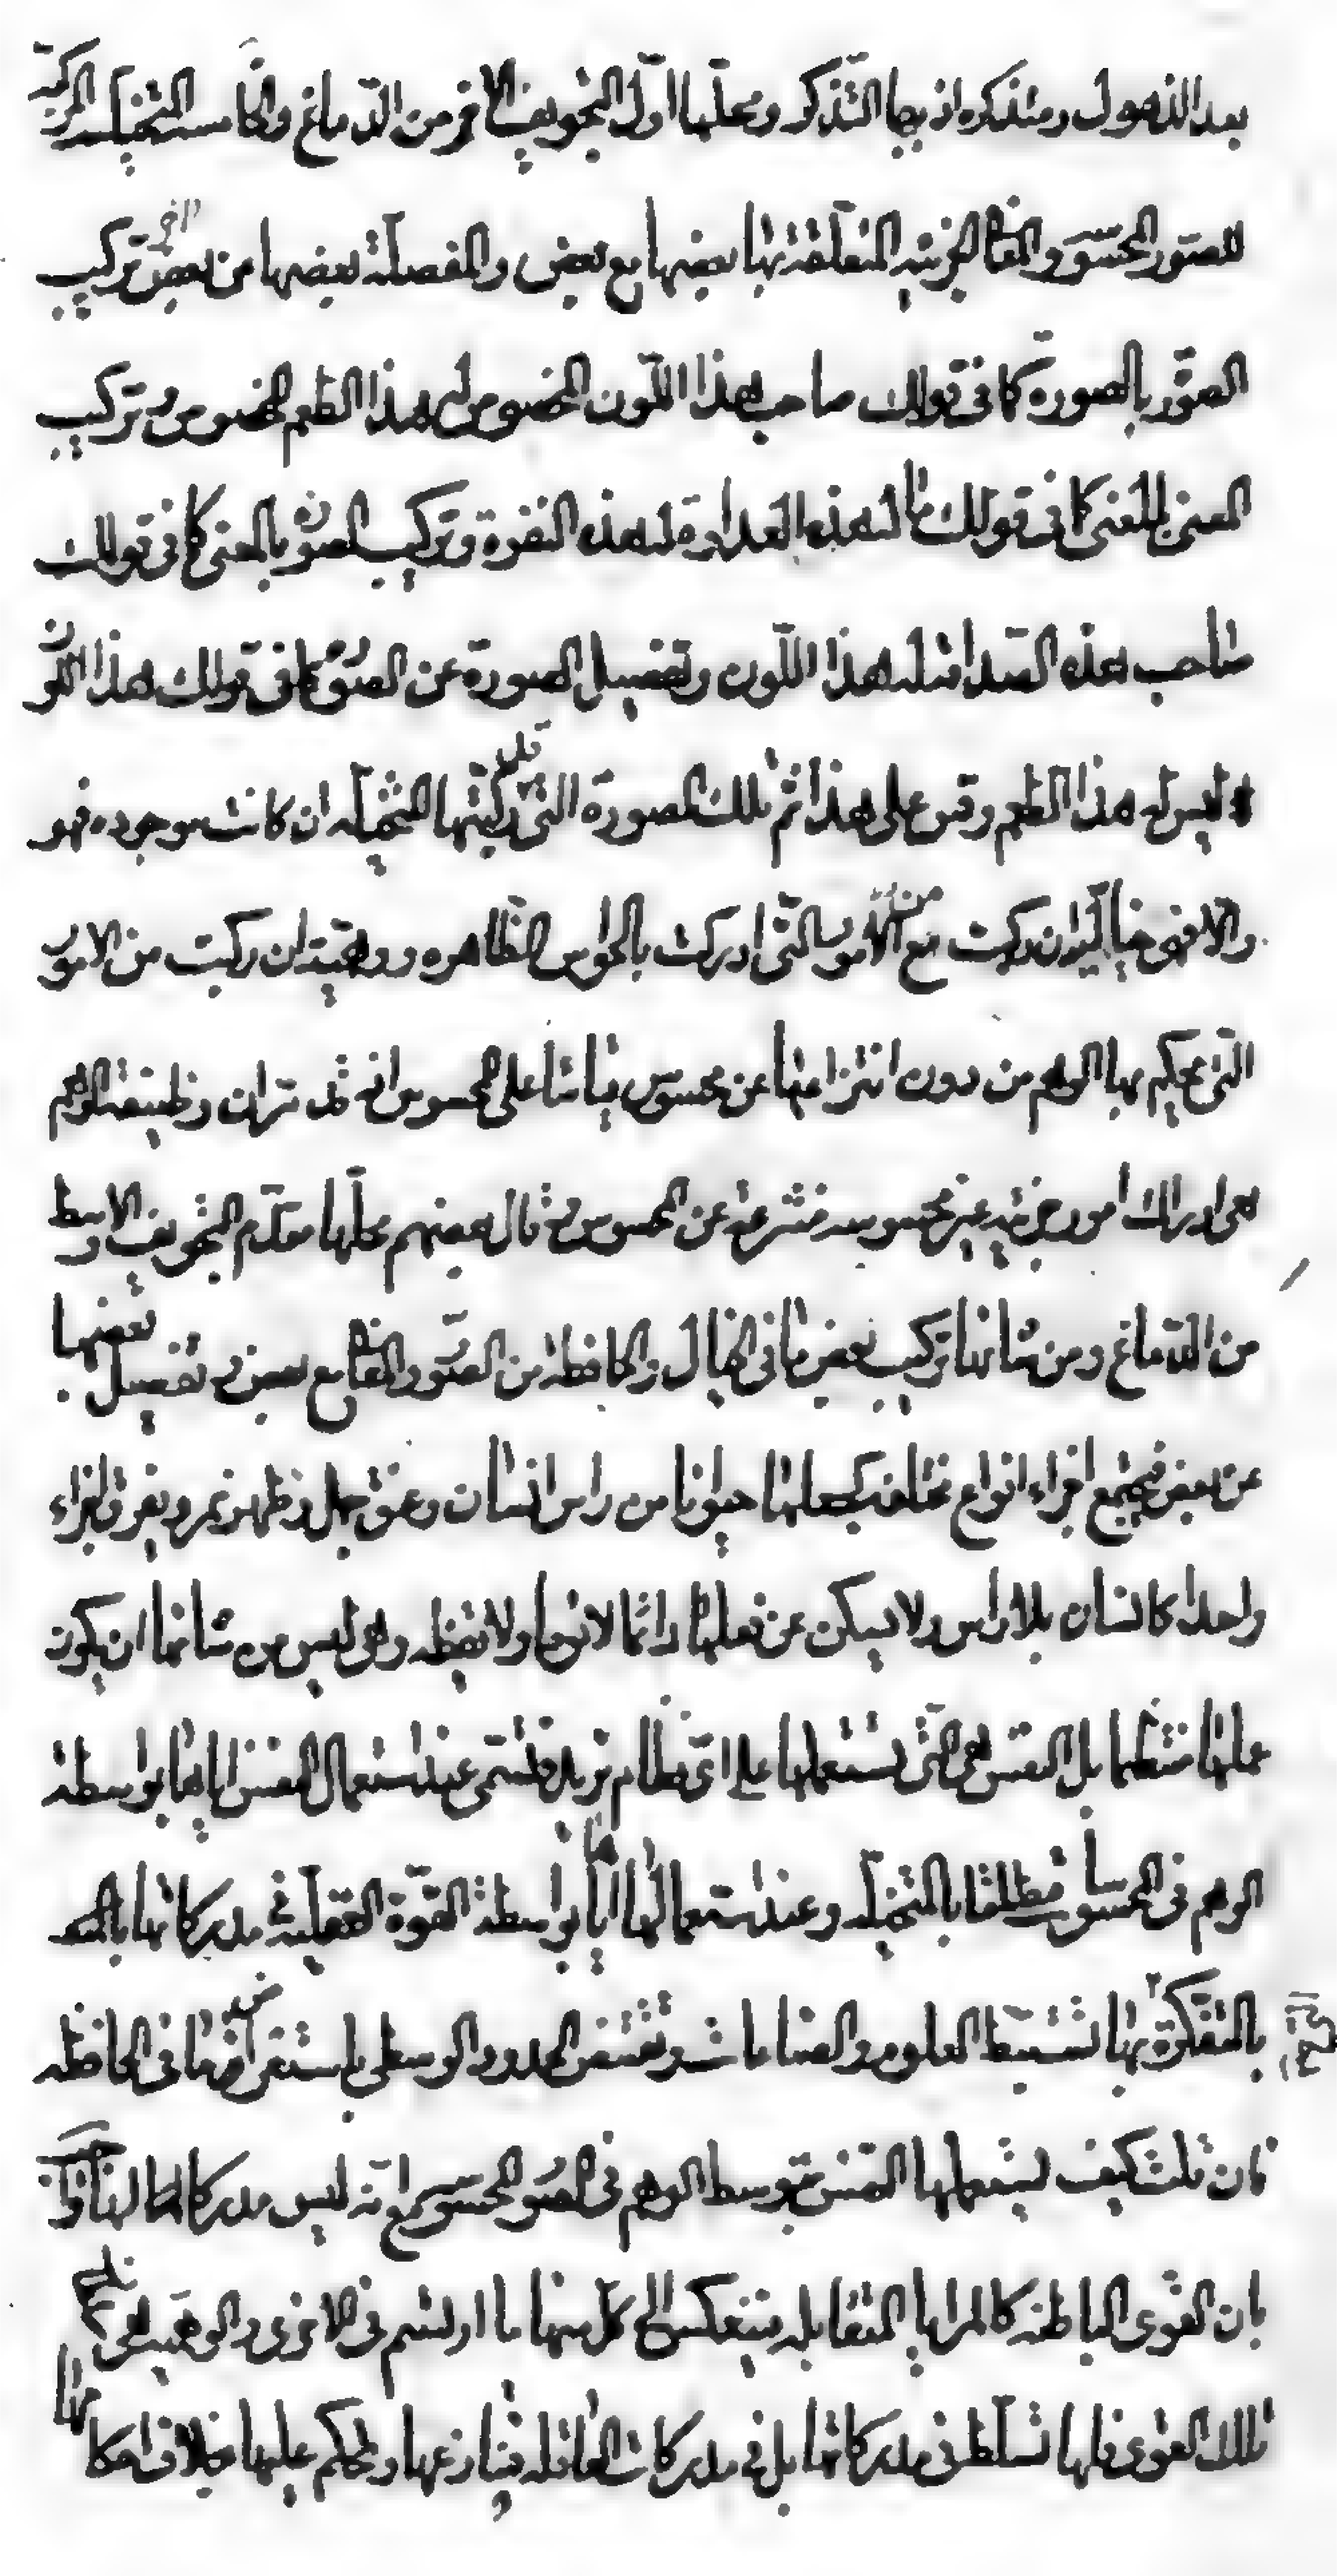 بعد الذهول ومتذكره اذ بها التذكر ومحلها اول التجويف الاخر من الدماغ والخامسة المتخيلة المركبة
للصور المحسوسة والمعاني الجزئية المتعلقة بها بعضها مع بعض والمفصلة بعضها من بعض اخر تركيب
الصور بالصورة كما في قولك صاحب هذا اللون المخصوص له هذا الطعم المخصوص وتركيب
المعنى بالمعنى كما في قولك ما له هذه العداوة له هذه النفرة وتركيب الصورة بالمعنى كما في قولك
صاحب هذه الصداقة له هذا اللون وتفصيل الصورة عن الصورة كما في قولك هذا اللون
ليس له هذا الطعم وقس على هذا ثم تلك الصورة التي ركبتها المتخيلة قد ان كانت موجوده فهو
والا فهي خيالية ان ركبت من الامور التي ادركت بالحواس الظاهره ووهمية ان ركبت من الامور
التي يحكم بها الوهم من دون انتزاعها عن محسوس قياسا على المحسوس انه قد تران وظيفة الوهم
هي ادراك امور جزئية غير محسوسة منتزعة عن المحسوس ثم قال بعضهم محلها مقدم التجويف الاوسط
من الدماغ ومن شانها تركيب بعض ما في الخيال والحافظة من الصور والمعاني مع بعض وتفصيل بعضها
عن بعض فيجمع اجزاء انواع مختلفة كجعلها حيوانا من راس انسان وعنق جمل وظهر نمر ويفرق اجزاء
واحد كانسان بلا راس ولا يسكن عن فعلها دائما لا نوما ولا يقظه وهي ليس من شانها ان يكون
عملها منتظما بل النفس هي التي تستعملها على اي نظام تريد فتسمى عند استعمال النفس اياها بواسطة
الوهم في المحسوسات مطلقا بالمتخيله وعند استعمالها اياها بواسطة القوة العقلية في مدركاتها بالمتـ
بالمتفكرة بها تستنبط العلوم والصناعات وتقتنص الحدود الوسطى باستعراض ما في الحافظه
فان قلت كيف يستعملها النفس بتوسط الوهم في الصور المحسوسة مع انه ليس مدركا لها
بان القوى الباطنة كالمرايا المتقابله فينعكس الى كل منها ما ارتسم في الاخرى والوهمية هي
تلك القوى فلها تسلط في مدركاتها بل في مدركات العاقله فينازعها ويحكم عليها بخلاف احكا مها